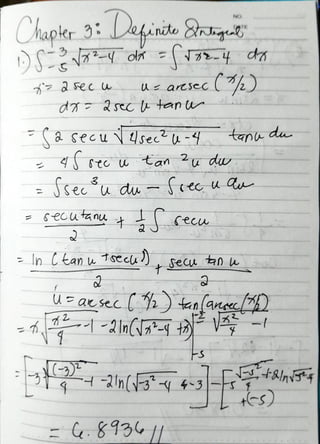 NO.
DATE
Chapter 3: Definite Integral
1.) ∫₋₅⁻³ √x²-4 dx = ∫√x²-4 dx
x = 2 sec u u = arcsec (x/2)
dx = 2 sec u tan u
= ∫2 sec u √4sec² u - 4 tan u du
= 4∫ sec u tan² u du
= ∫sec³ u du - ∫sec u du
= sec u tan u / 2 + 1/2 ∫ sec u
= ln (tan u + sec u) / 2 + sec u tan u / 2
u = arcsec (x/2) tan (arcsec (x/2))
= x √x²/4 -1 - 2ln(√x²-4 + x) |₋₅⁻³ = √x²/4 - 1
= [-3√(-3)²/4 -1 - 2ln(√-3²-4 + -3] - [-5 √-5²/4 + 2ln √-5²-4
+(-5)
= 6.8936 //